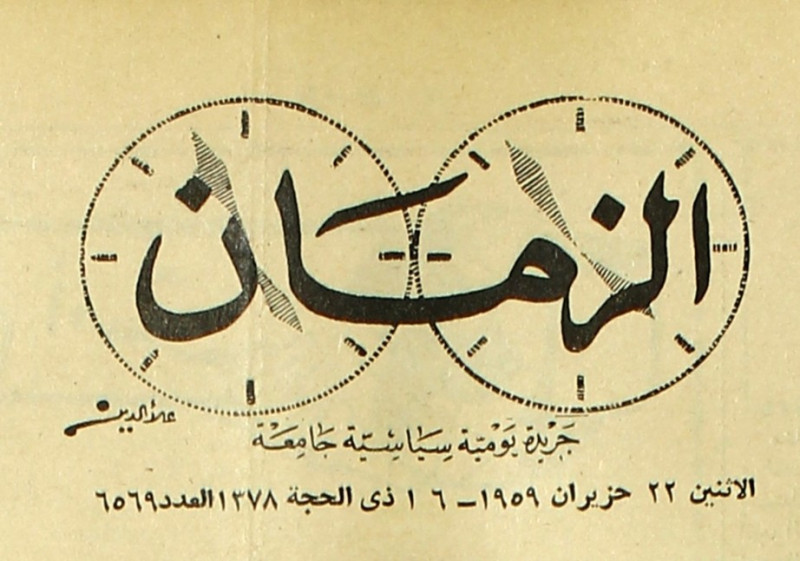 الزمان
علاءالدين
جَريدة يَوميّة سِيَاسيّة جَامِعَة
الاثنين ٢٢ حزيران ١٩٥٩ – ١٦ ذى الحجة ١٣٧٨ العدد ٦٥٦٩